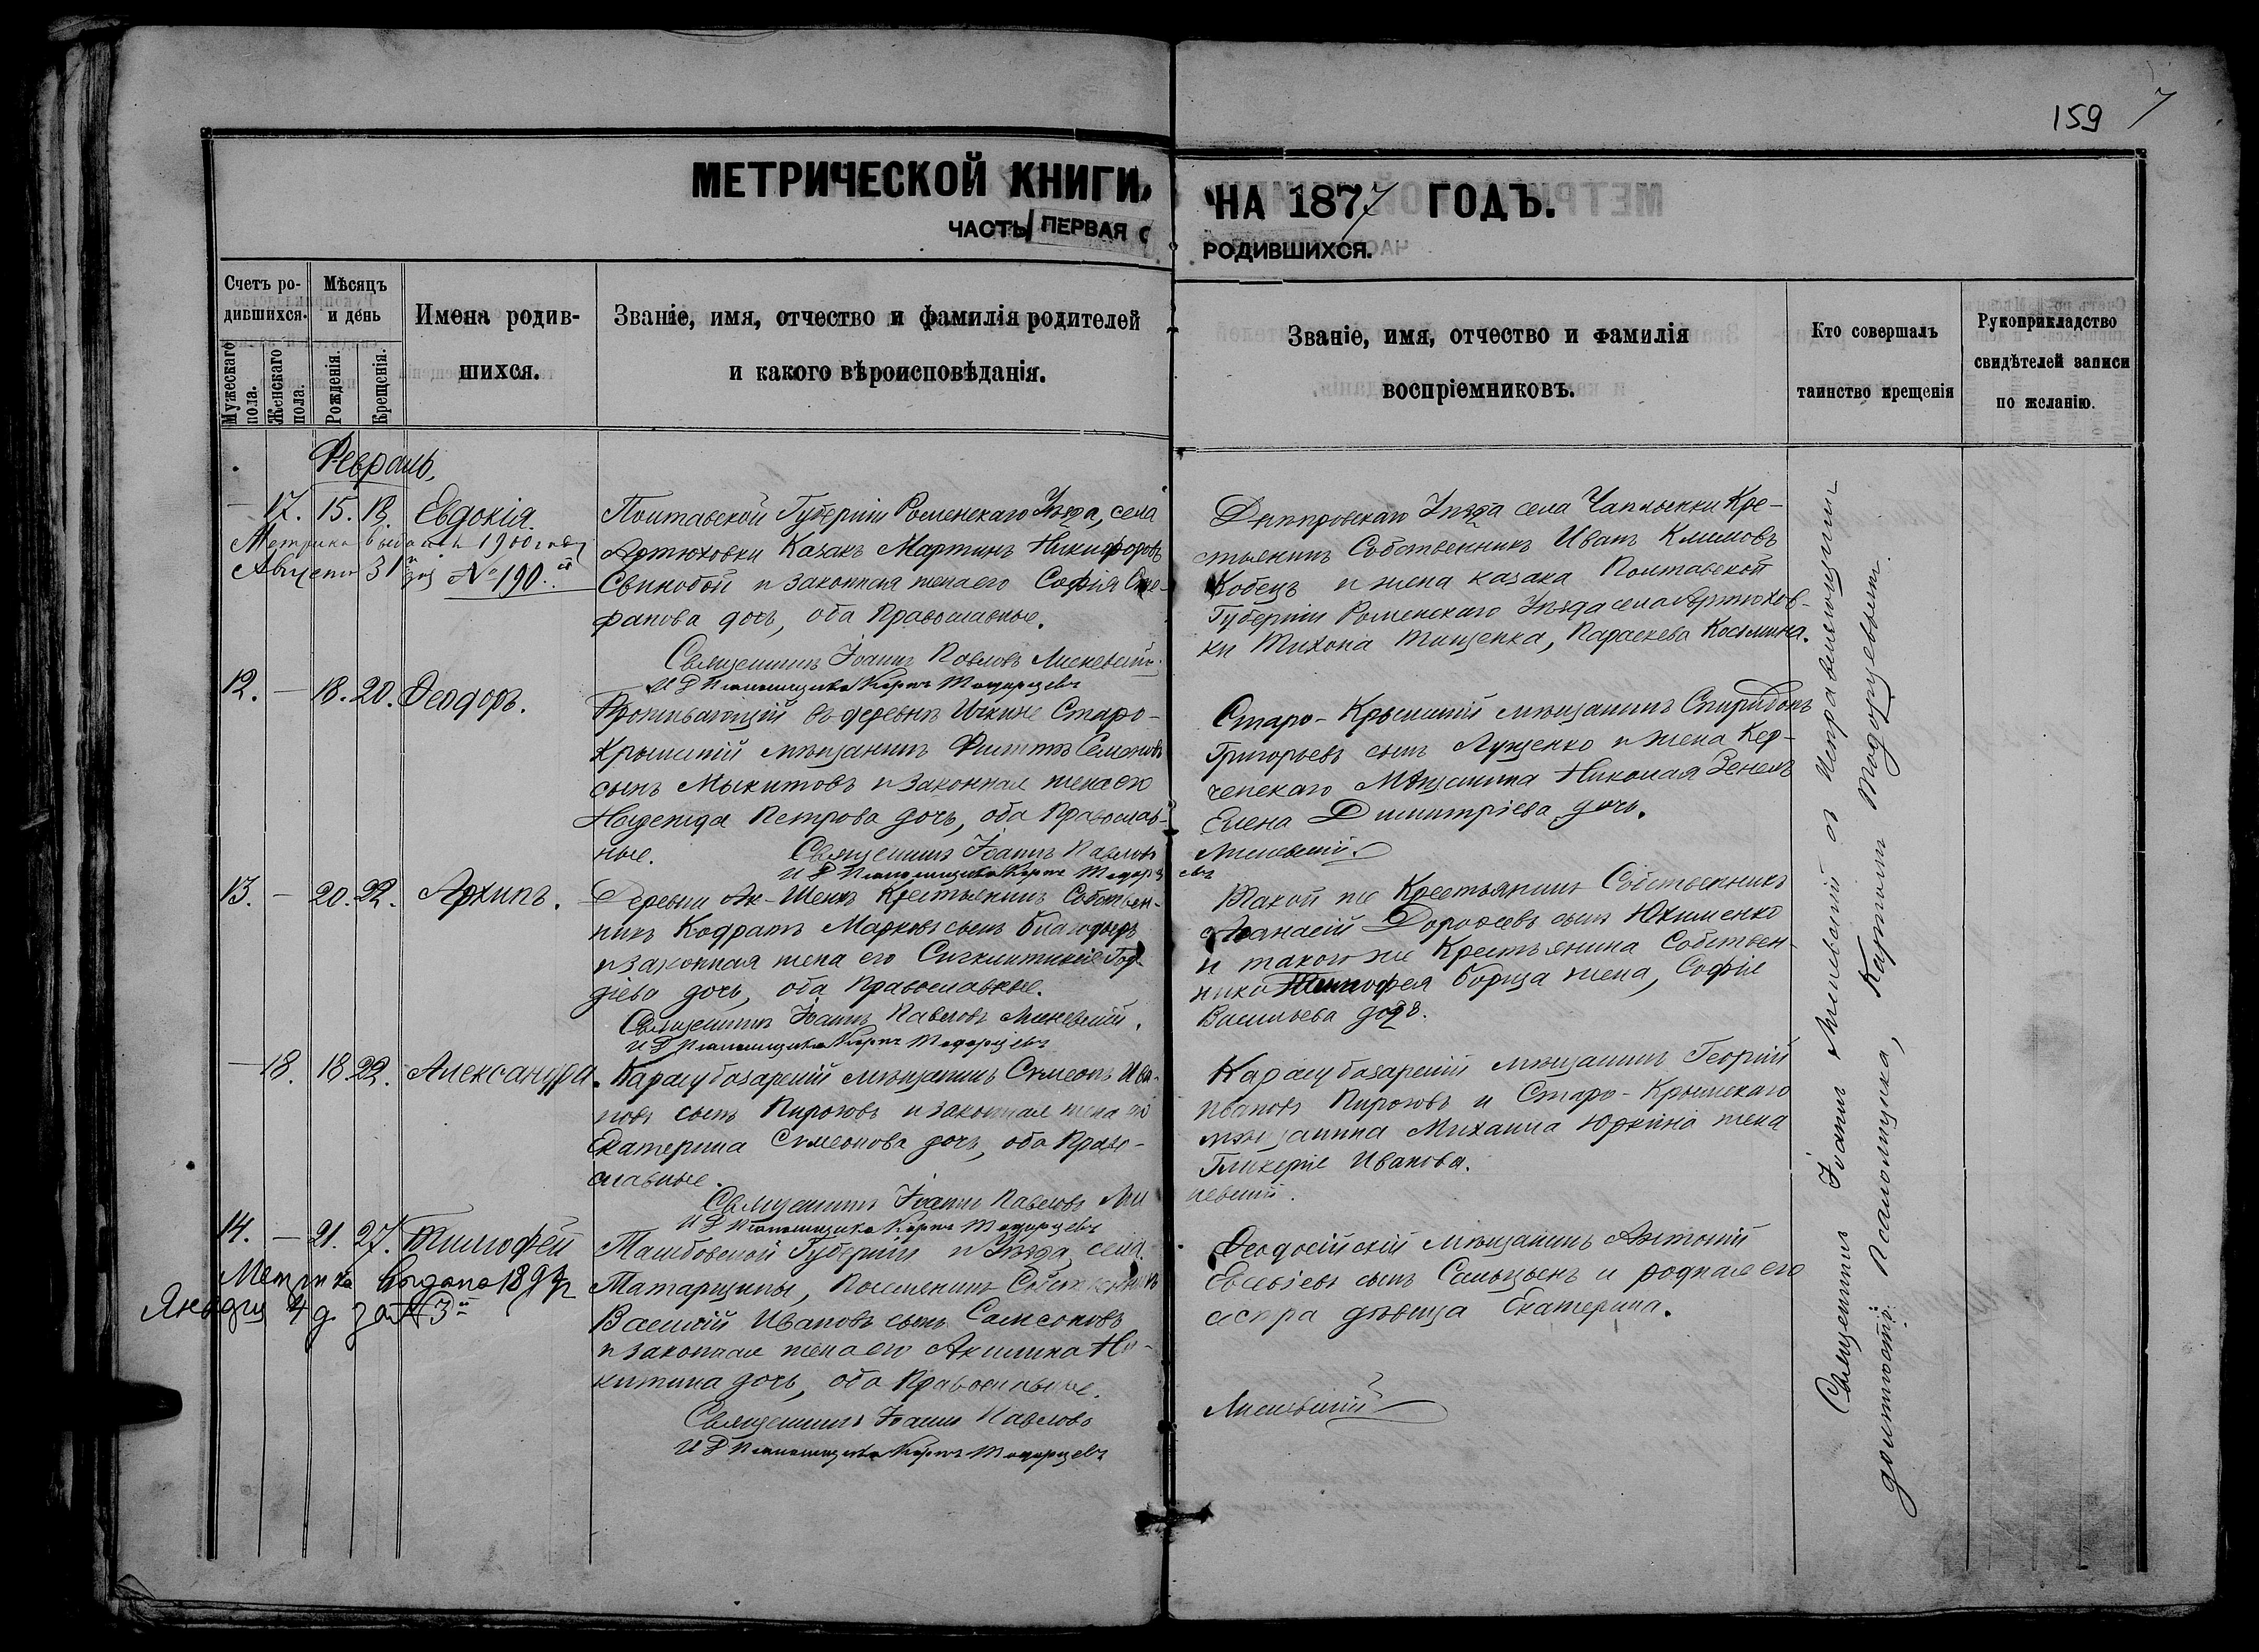 159 7
МЕТРИЧЕСКОЙ КНИГИ НА 1877 ГОДЪ.
ЧАСТЬ ПЕРВАЯ РОДИВШИХСЯ.
Счетъ родившихся.
Мужескаго пола.
Женскаго пола.
Мѣсяцъ и день
Рожденія.
Крещенія.
Имена родив-
шихся.
Званіе, имя, отчество и фамилія родителей
и какого вѣроисповѣданія.
Званіе, имя, отчество и фамилія
воспріемниковъ.
Кто совершалъ
таинство крещенія
Рукоприкладство
свидѣтелей записи
по желанію.
Февраль,
— 17. 15. 18. Евдокія.
Метрика выдана 1900 года
Августа 31 за № 190.
Полтавской Губерніи Роменскаго Уѣзда, села
Артюховки Казакъ Мартинъ Никифоровъ
Свинобой и законная жена его Софія Сте-
фанова дочь, оба Православные.
Священникъ Іоаннъ Павловъ
И Д Псаломщика Карпъ Тодорцевъ
Днѣпровскаго Уѣзда села Чаплынки Кре-
стьянинъ Собственникъ Иванъ Климовъ
Кобецъ и жена казака Полтавской
Губерніи Роменскаго Уѣзда села Артюхов-
ки Тихона Тищенка, Параскева Косьмина.
12. — 18. 20. Феодоръ.
Проживающій въ деревнѣ Старо-
Крымскій мѣщанинъ Филиппъ Семеновъ
сынъ Мыкитовъ и законная жена его
Надежда Петрова дочь, оба Православ-
ные. Священникъ Іоаннъ Павловъ
И Д Псаломщика Карпъ Тодорцевъ
Старо-Крымскій мѣщанинъ Спиридонъ
Григорьевъ сынъ Луценко и жена Кер-
ченскаго Мѣщанина Николая
Елена Димитріева дочь.
13. — 20. 22. Архипъ.
Деревни Ак-Шеихъ Крестьянинъ Собствен-
никъ Кодратъ Марковъ сынъ Благодыръ
и законная жена его
дочь, оба Православные.
Священникъ Іоаннъ Павловъ
И Д Псаломщика Карпъ Тодорцевъ
Такой же Крестьянинъ Собственникъ
Аѳанасій Дороѳеевъ сынъ Юхименко
и такого же Крестьянина Собствен-
ника Тимофея Борща жена, Софія
Васильева дочь.
— 18. 18. 22. Александра.
Карасубазарскій мѣщанинъ Симеонъ Ива-
новъ сынъ Пироговъ и законная жена его
Екатерина Симеонова дочь, оба Право-
славные.
Священникъ Іоаннъ Павловъ
И Д Псаломщика Карпъ Тодорцевъ
Карасубазарскій мѣщанинъ Георгій
Ивановъ Пироговъ и Старо-Крымскаго
мѣщанина Михаила Юркина жена
Гликерія Иванова.
14. — 21. 27. Тимофей
Метрика выдана
Января 4 д. за № 3
Тамбовской Губерніи и Уѣзда, села
Татарщины, Поселенинъ Собственникъ
Василій Ивановъ сынъ Самсоновъ
и законная жена его Акилина Ни-
китина дочь, оба Православные.
Священникъ Іоаннъ Павловъ
И Д Псаломщика Карпъ Тодорцевъ
Феодосійскій мѣщанинъ Антоній
Евсевіевъ сынъ и родная его
сестра дѣвица Екатерина.
Священникъ Іоаннъ съ Исправляющимъ
должность Псаломщика, Карпомъ Тодорцевымъ.